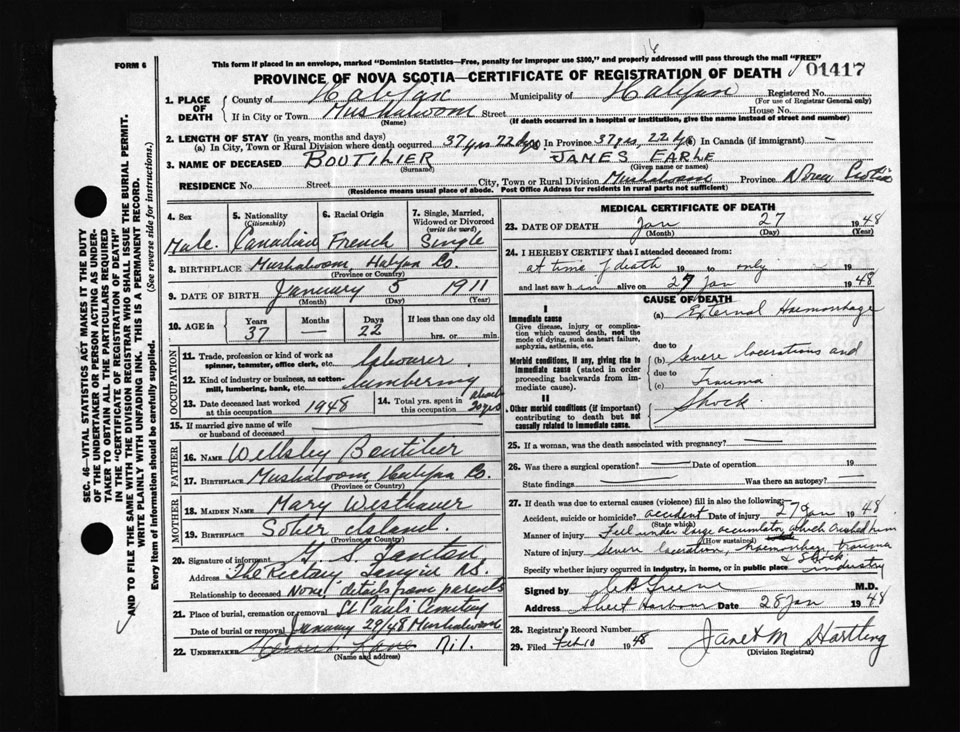 FORM 6
This form if placed in an envelope, marked "Dominion Statistics—Free, penalty for improper use $300," and properly addressed will pass through the mail "FREE"
PROVINCE OF NOVA SCOTIA—CERTIFICATE OF REGISTRATION OF DEATH 01417
1. PLACE OF DEATH
County of Halifax Municipality of Halifax Registered No.
(For use of Registrar General only)
If in City or Town Mushaboom Street House No.
(Name) (If death occurred in a hospital or institution, give the name instead of street and number)
2. LENGTH OF STAY (in years, months and days)
(a) In City, Town or Rural Division where death occurred 37 yrs 22 dys (b) In Province 37 yrs, 22 dys (c) In Canada (if immigrant) —
3. NAME OF DECEASED BOUTILIER JAMES EARLE
(Surname) (Given name or names)
RESIDENCE No. Street City, Town or Rural Division Mushaboom Province Nova Scotia
(Residence means usual place of abode. Post Office Address for residents in rural parts not sufficient)
4. Sex Male
5. Nationality (Citizenship) Canadian
6. Racial Origin French
7. Single, Married, Widowed or Divorced (write the word) Single
8. BIRTHPLACE Mushaboom Halifax Co.
(Province or Country)
9. DATE OF BIRTH January 5 1911
(Month) (Day) (Year)
10. AGE in Years Months Days If less than one day old
37 — 22 hrs. or min.
OCCUPATION
11. Trade, profession or kind of work as spinner, teamster, office clerk, etc. Labourer
12. Kind of industry or business, as cotton-mill, lumbering, bank, etc. Lumbering
13. Date deceased last worked at this occupation 1948
14. Total yrs. spent in this occupation about 20 yrs
15. If married give name of wife or husband of deceased —
FATHER
16. Name Wellsley Boutilier
17. Birthplace Mushaboom Halifax Co.
(Province or Country)
MOTHER
18. Maiden Name Mary Westhaver
19. Birthplace Sober Island.
(Province or Country)
20. Signature of informant
Address The Rectory, N.S.
Relationship to deceased None, details from parents
21. Place of burial, cremation or removal St Paul's Cemetery
Date of burial or removal January 29/48 Mushaboom
22. UNDERTAKER Nil.
(Name and address)
MEDICAL CERTIFICATE OF DEATH
23. DATE OF DEATH Jan 27 1948
(Month) (Day) (Year)
24. I HEREBY CERTIFY that I attended deceased from:
at time of death 19 to only 19
and last saw him alive on 27 Jan 1948
CAUSE OF DEATH
I
Immediate cause
Give disease, injury or complication which caused death, not the mode of dying, such as heart failure, asphyxia, asthenia, etc.
(a) External Haemorrhage
due to
Morbid conditions, if any, giving rise to immediate cause (stated in order proceeding backwards from immediate cause).
(b) Severe lacerations and
due to
(c) Trauma
II
Other morbid conditions (if important) contributing to death but not causally related to immediate cause.
Shock.
25. If a woman, was the death associated with pregnancy? —
26. Was there a surgical operation? — Date of operation 19
State findings — Was there an autopsy? —
27. If death was due to external causes (violence) fill in also the following:
Accident, suicide or homicide? accident Date of injury 27 Jan 1948
(State which)
Manner of injury Fell under large accumulator which crushed him
(How sustained)
Nature of injury Severe laceration, haemorrhage, trauma & Shock
Specify whether injury occurred in industry, in home, or in public place industry
Signed by Greene M.D.
Address Sheet Harbour Date 28 Jan 1948
28. Registrar's Record Number
29. Filed Feb 10 1948 Janet M Hartling
(Division Registrar)
SEC. 46—VITAL STATISTICS ACT MAKES IT THE DUTY
OF THE UNDERTAKER OR PERSON ACTING AS UNDER-
TAKER TO OBTAIN ALL THE PARTICULARS REQUIRED
IN THE "CERTIFICATE OF REGISTRATION OF DEATH"
AND TO FILE THE SAME WITH THE DIVISION REGISTRAR WHO SHALL ISSUE THE BURIAL PERMIT.
WRITE PLAINLY WITH UNFADING INK. THIS IS A PERMANENT RECORD.
Every item of information should be carefully supplied. (See reverse side for instructions.)